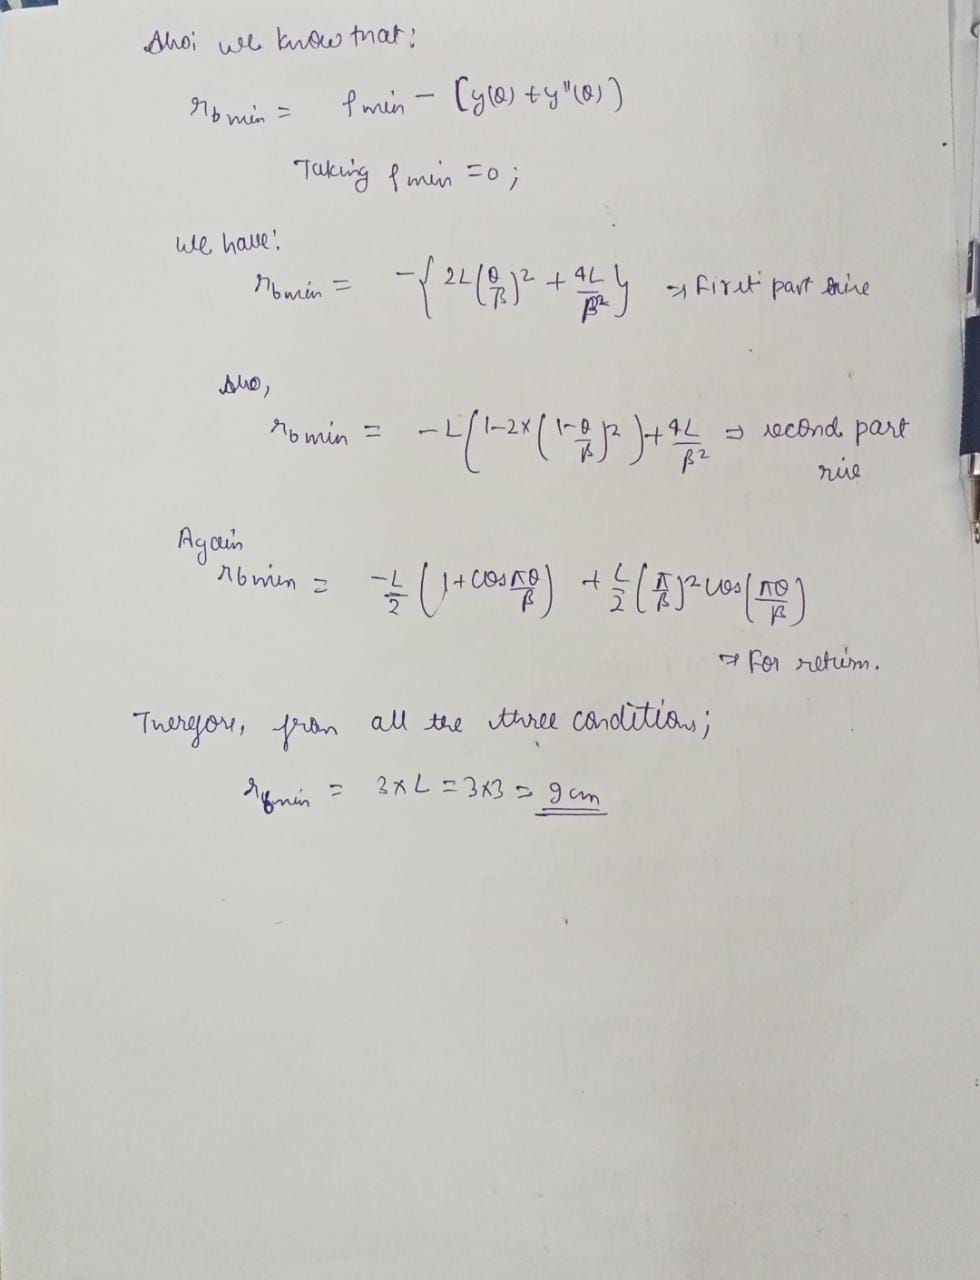 Also; we know that;
r_b min = ρ min - [y(θ) + y"(θ))
Taking ρ min = 0;
we have:
r_b min = -{ 2L(θ/β)² + 4L/β² } ⇒ First part rise
Also,
r_b min = -L(1-2×(1-θ/β)²) + 4L/β² ⇒ second part
rise
Again
r_b min = -L/2 (1+cos πθ/β) + L/2 (π/β)² cos(πθ/β)
⇒ For return.
Therefore, from all the three conditions;
r_b min = 3×L = 3×3 = 9 cm